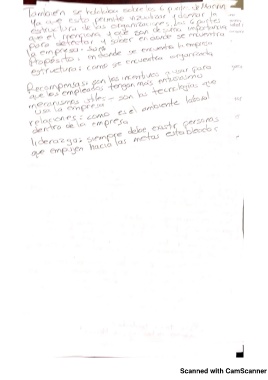 También se hablaba sobre los 6 puntos de Marvin
Ya que esto permite visualizar y diseñar la
estructura de las organizaciones, las 6 partes
que el menciona y que son de suma importancia
para detectar y saber en donde se encuentra
la empresa son:
Propósito, en donde se encuentra la empresa
estructura: como se encuentra organizada
Recompensas: son los incentivos a usar para
que los empleados tengan más entusiasmo
mecanismos útiles - son las tecnologías que
usa la empresa
relaciones: como es el ambiente laboral
dentro de la empresa
liderazgo: siempre debe existir personas
que empujen hacia las metas establecidas
Scanned with CamScanner